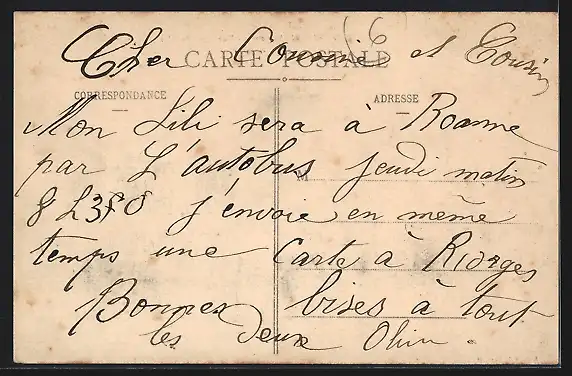 16
Cher Cousine et Cousin
CARTE POSTALE
CORRESPONDANCE
ADRESSE
Mon Lili sera à Roanne
par L'autobus jeudi matin
M
8 L 3 J'envoie en même
temps une Carte à Riorges
Bonnes bises à tout
les deux